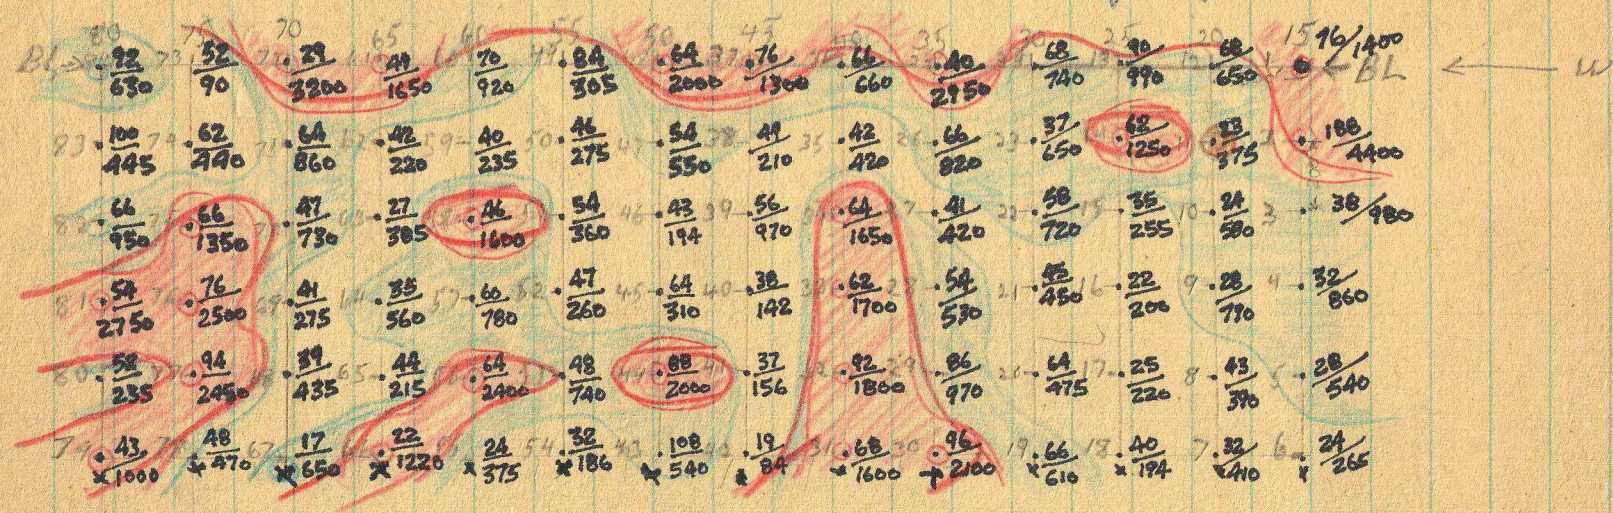 80 75 70 65 60 55 50 45 35 25 20 15
BL 92/630 52/90 29/3200 49/1650 70/920 84/305 64/2000 76/1300 66/660 40/2950 68/740 90/990 68/650 96/1400 BL
83 100/445 62/440 64/860 42/220 59 40/235 50 46/275 54/550 49/210 35 42/420 66/820 23 37/650 62/1250 23/375 188/4400
66/950 66/1350 47/730 27/385 46/1600 54/360 46 43/194 39 56/970 64/1650 41/420 22 58/720 15 35/255 10 24/580 3 38/980
81 54/2750 76/2500 69 41/275 35/560 60/780 52 47/260 45 64/310 40 38/142 62/1700 54/530 21 45/450 16 22/200 9 28/790 4 32/860
58/235 94/2450 39/435 65 44/215 64/2400 48/740 88/2000 37/156 92/1800 29 86/970 64/475 17 25/220 8 43/390 5 28/540
79 43/1000 48/470 67 17/650 22/1220 24/375 54 32/186 108/540 19/84 31 68/1600 30 96/2100 19 66/610 18 40/194 7 32/410 6 24/265